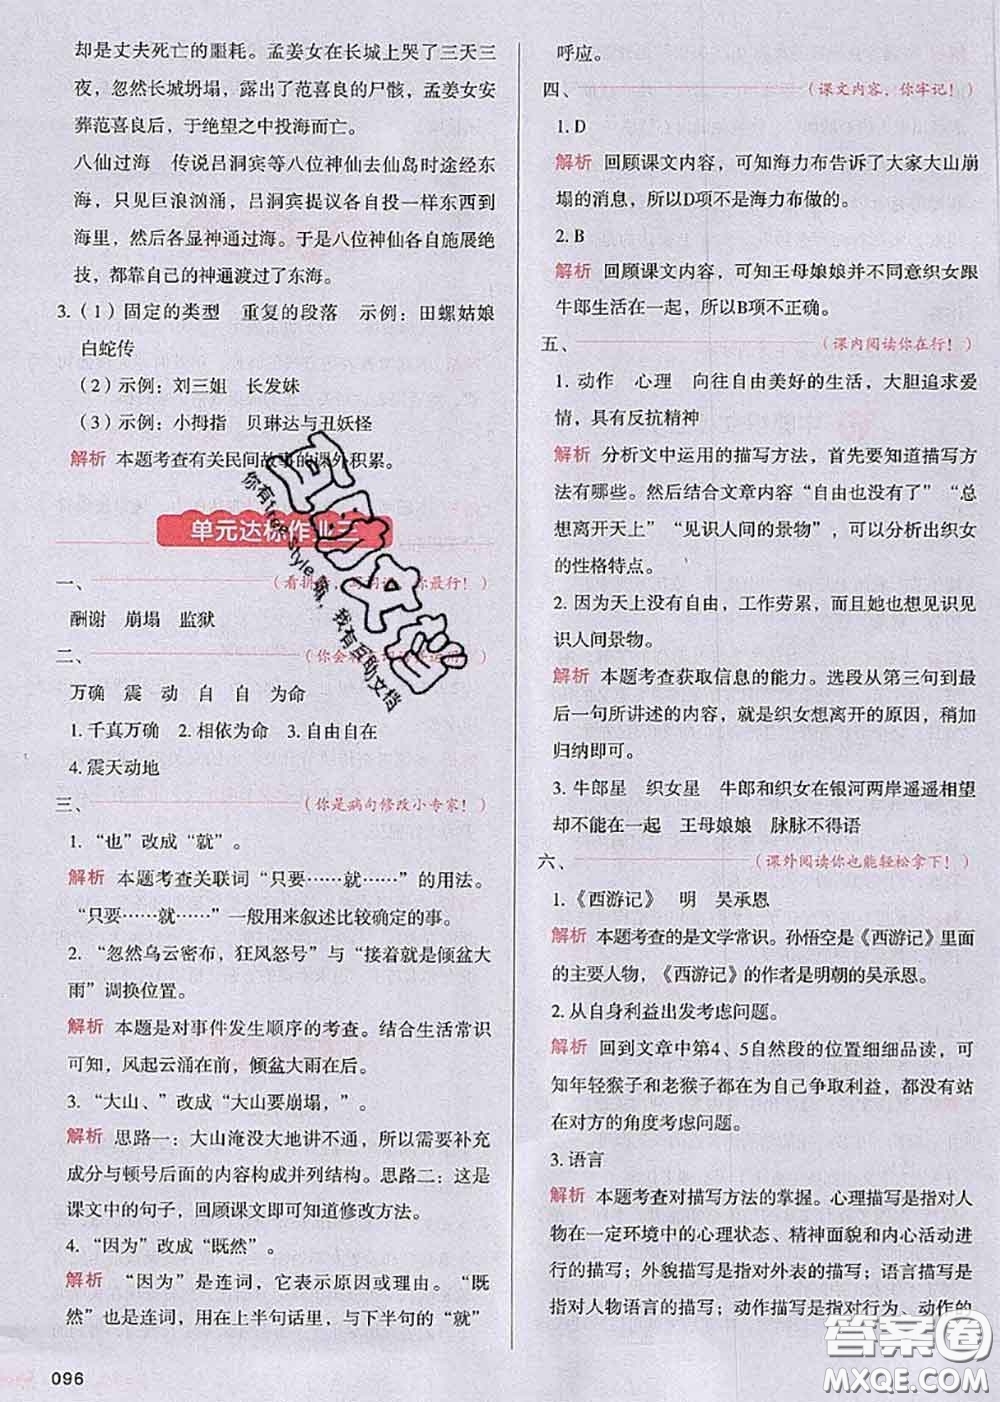 却是丈夫死亡的噩耗。孟姜女在长城上哭了三天三
夜，忽然长城坍塌，露出了范喜良的尸骸，孟姜女安
葬范喜良后，于绝望之中投海而亡。
八仙过海　传说吕洞宾等八位神仙去仙岛时途经东
海，只见巨浪汹涌，吕洞宾提议各自投一样东西到
海里，然后各显神通过海。于是八位神仙各自施展绝
技，都靠自己的神通渡过了东海。
3.（1）固定的类型　重复的段落　示例：田螺姑娘
白蛇传
（2）示例：刘三姐　长发妹
（3）示例：小拇指　贝琳达与丑妖怪
解析　本题考查有关民间故事的课外积累。
单元达标作业三
一、（看拼　　你最行！）
酬谢　崩塌　监狱
二、（你会
万确　震　动　自　自　为命
1. 千真万确　2. 相依为命　3. 自由自在
4. 震天动地
三、（你是病句修改小专家！）
1. “也”改成“就”。
解析　本题考查关联词“只要……就……”的用法。
“只要……就……”一般用来叙述比较确定的事。
2. “忽然乌云密布，狂风怒号”与“接着就是倾盆大
雨”调换位置。
解析　本题是对事件发生顺序的考查。结合生活常识
可知，风起云涌在前，倾盆大雨在后。
3. “大山、”改成“大山要崩塌，”
解析　思路一：大山淹没大地讲不通，所以需要补充
成分与顿号后面的内容构成并列结构。思路二：这是
课文中的句子，回顾课文即可知道修改方法。
4. “因为”改成“既然”。
解析　“因为”是连词，它表示原因或理由。“既
然”也是连词，用在上半句话里，与下半句的“就”
096
呼应。
四、（课文内容，你牢记！）
1. D
解析　回顾课文内容，可知海力布告诉了大家大山崩
塌的消息，所以D项不是海力布做的。
2. B
解析　回顾课文内容，可知王母娘娘并不同意织女跟
牛郎生活在一起，所以B项不正确。
五、（课内阅读你在行！）
1. 动作　心理　向往自由美好的生活，大胆追求爱
情，具有反抗精神
解析　分析文中运用的描写方法，首先要知道描写方
法有哪些。然后结合文章内容“自由也没有了”“总
想离开天上”“见识人间的景物”，可以分析出织女
的性格特点。
2. 因为天上没有自由，工作劳累，而且她也想见识见
识人间景物。
解析　本题考查获取信息的能力。选段从第三句到最
后一句所讲述的内容，就是织女想离开的原因，稍加
归纳即可。
3. 牛郎星　织女星　牛郎和织女在银河两岸遥遥相望
却不能在一起　王母娘娘　脉脉不得语
六、（课外阅读你也能轻松拿下！）
1.《西游记》　明　吴承恩
解析　本题考查的是文学常识。孙悟空是《西游记》里面
的主要人物，《西游记》的作者是明朝的吴承恩。
2. 从自身利益出发考虑问题。
解析　回到文章中第4、5自然段的位置细细品读，可
知年轻猴子和老猴子都在为自己争取利益，都没有站
在对方的角度考虑问题。
3. 语言
解析　本题考查对描写方法的掌握。心理描写是指对人
物在一定环境中的心理状态、精神面貌和内心活动进
行的描写；外貌描写是指对外表的描写；语言描写是
指对人物语言的描写；动作描写是指对行为、动作的
答案圈
MXQE.COM